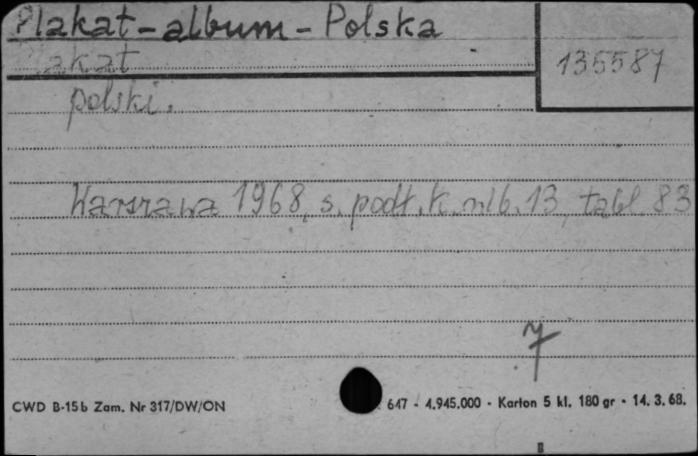 Plakat-album - Polska
Plakat
135587
polski.
Warszawa 1968, s. podt. k. nlb. 13, tabl. 83
7
CWD B-15b Zam. Nr 317/DW/ON
647 - 4.945.000 - Karton 5 kl. 180 gr - 14. 3. 68.